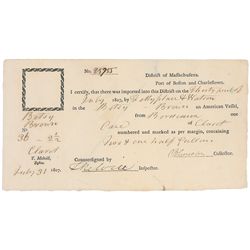 No. 28955
District of Massachusetts.
Port of Boston and Charlestown.
I certify, that there was imported into this District on the Thirty first of
July 1807, by
in the Betsy Brown an American Vessel,
from Bordeaux one
Case of Claret
numbered and marked as per margin, containing
two & one half Gallons
Betsy
Brown
No
36 - 2½
Claret
T. Melvill,
July 31 1807.
Countersigned by
Inspector.
Collector.